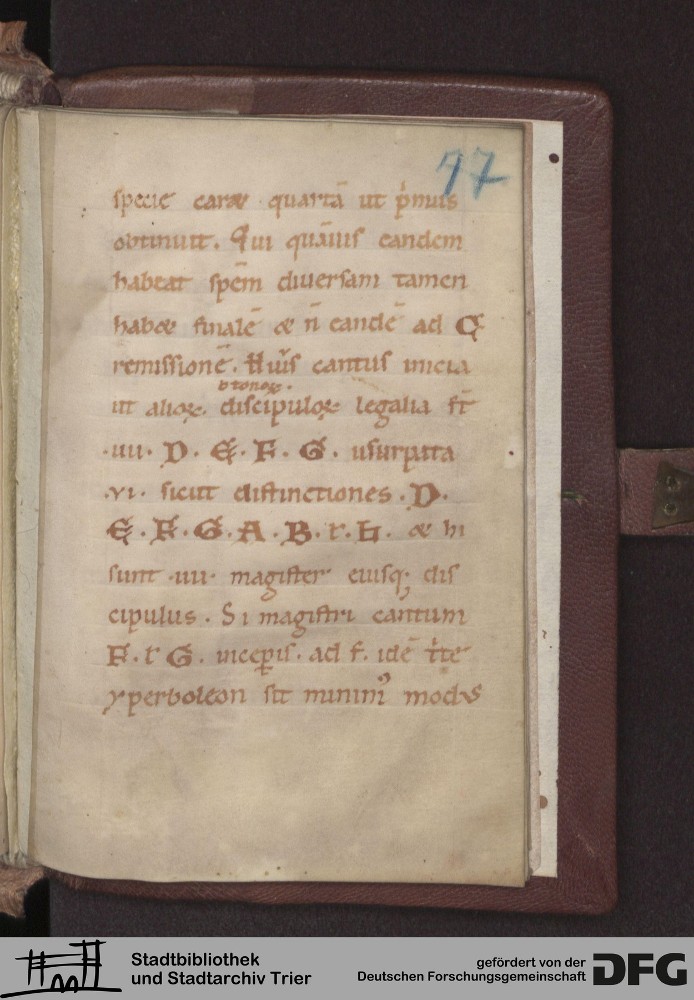 97
specie caret quartā ut p̍mus
obtinuit. Qui quāuis eandem
habeat spēm diuersam tamen
habet finalē et n̄ eandē ad G
remissionē. Huīs cantus inicia
btonoꝝ.
ut alioꝝ. discipuloꝝ legalia st̄
·iiii· D · E · F · G · usurpata
·vi· sicut distinctiones · D ·
E · F · G · A · B · r · h · et hi
sunt ·iiii· magister eiusq; dis
cipulus · Si magistri cantum
F · r G · incep̱is · ad f · idē
yperboleon sit modus
Stadtbibliothek
und Stadtarchiv Trier
gefördert von der
Deutschen Forschungsgemeinschaft
DFG